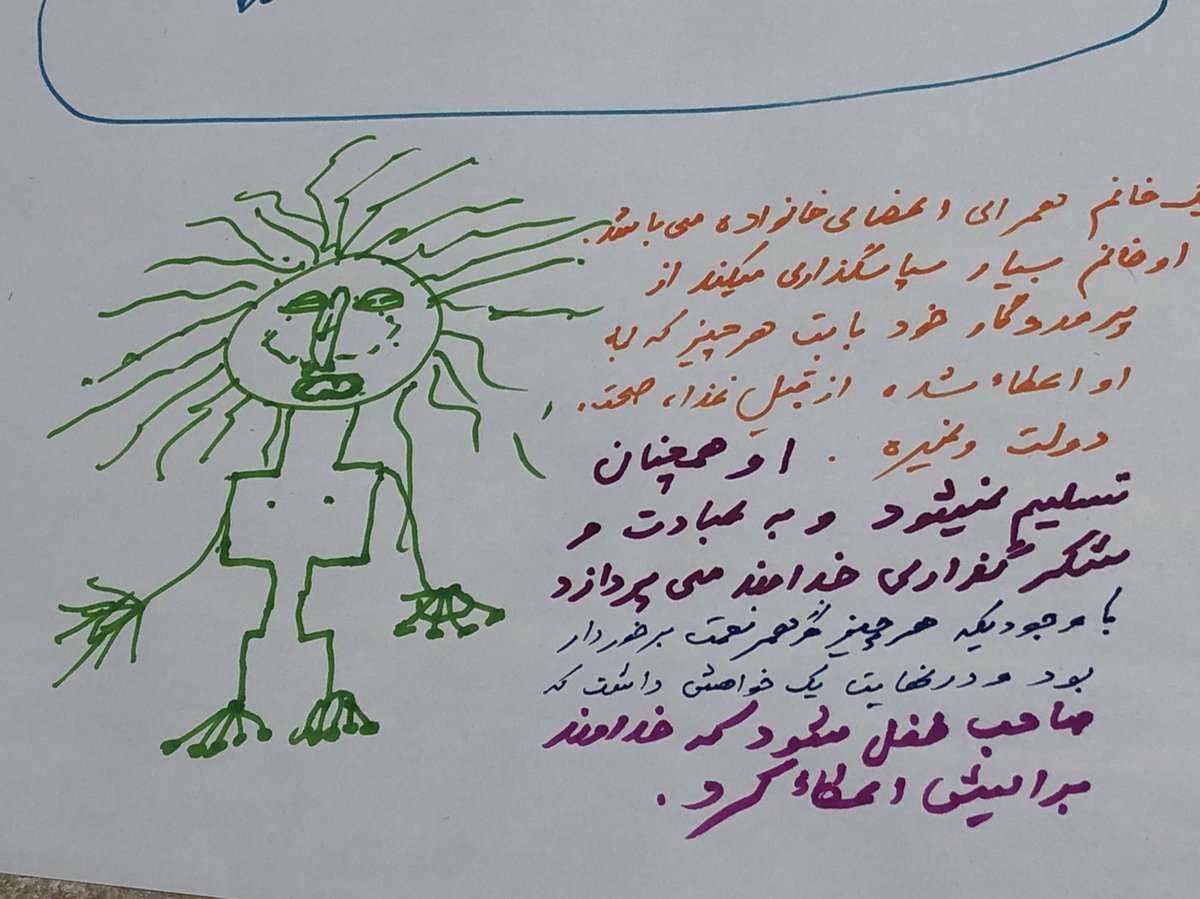 یک خانم همرای اعضای خانواده می باشد.
او خانم بسیار سپاسگذاری میکند از
پروردگار خود بابت هرچیز که به
او اعطاء شده از قبیل غذا، صحت،
دولت وغیره . او همچنان
تسلیم نمیشود و به عبادت و
شکر گذاری خداوند می پردازد
با وجودیکه هرچیز هر نعمت برخوردار
بود و درنهایت یک خواهش داشت که
صاحب طفل میشود که خداوند
برایش اعطاء کرد.